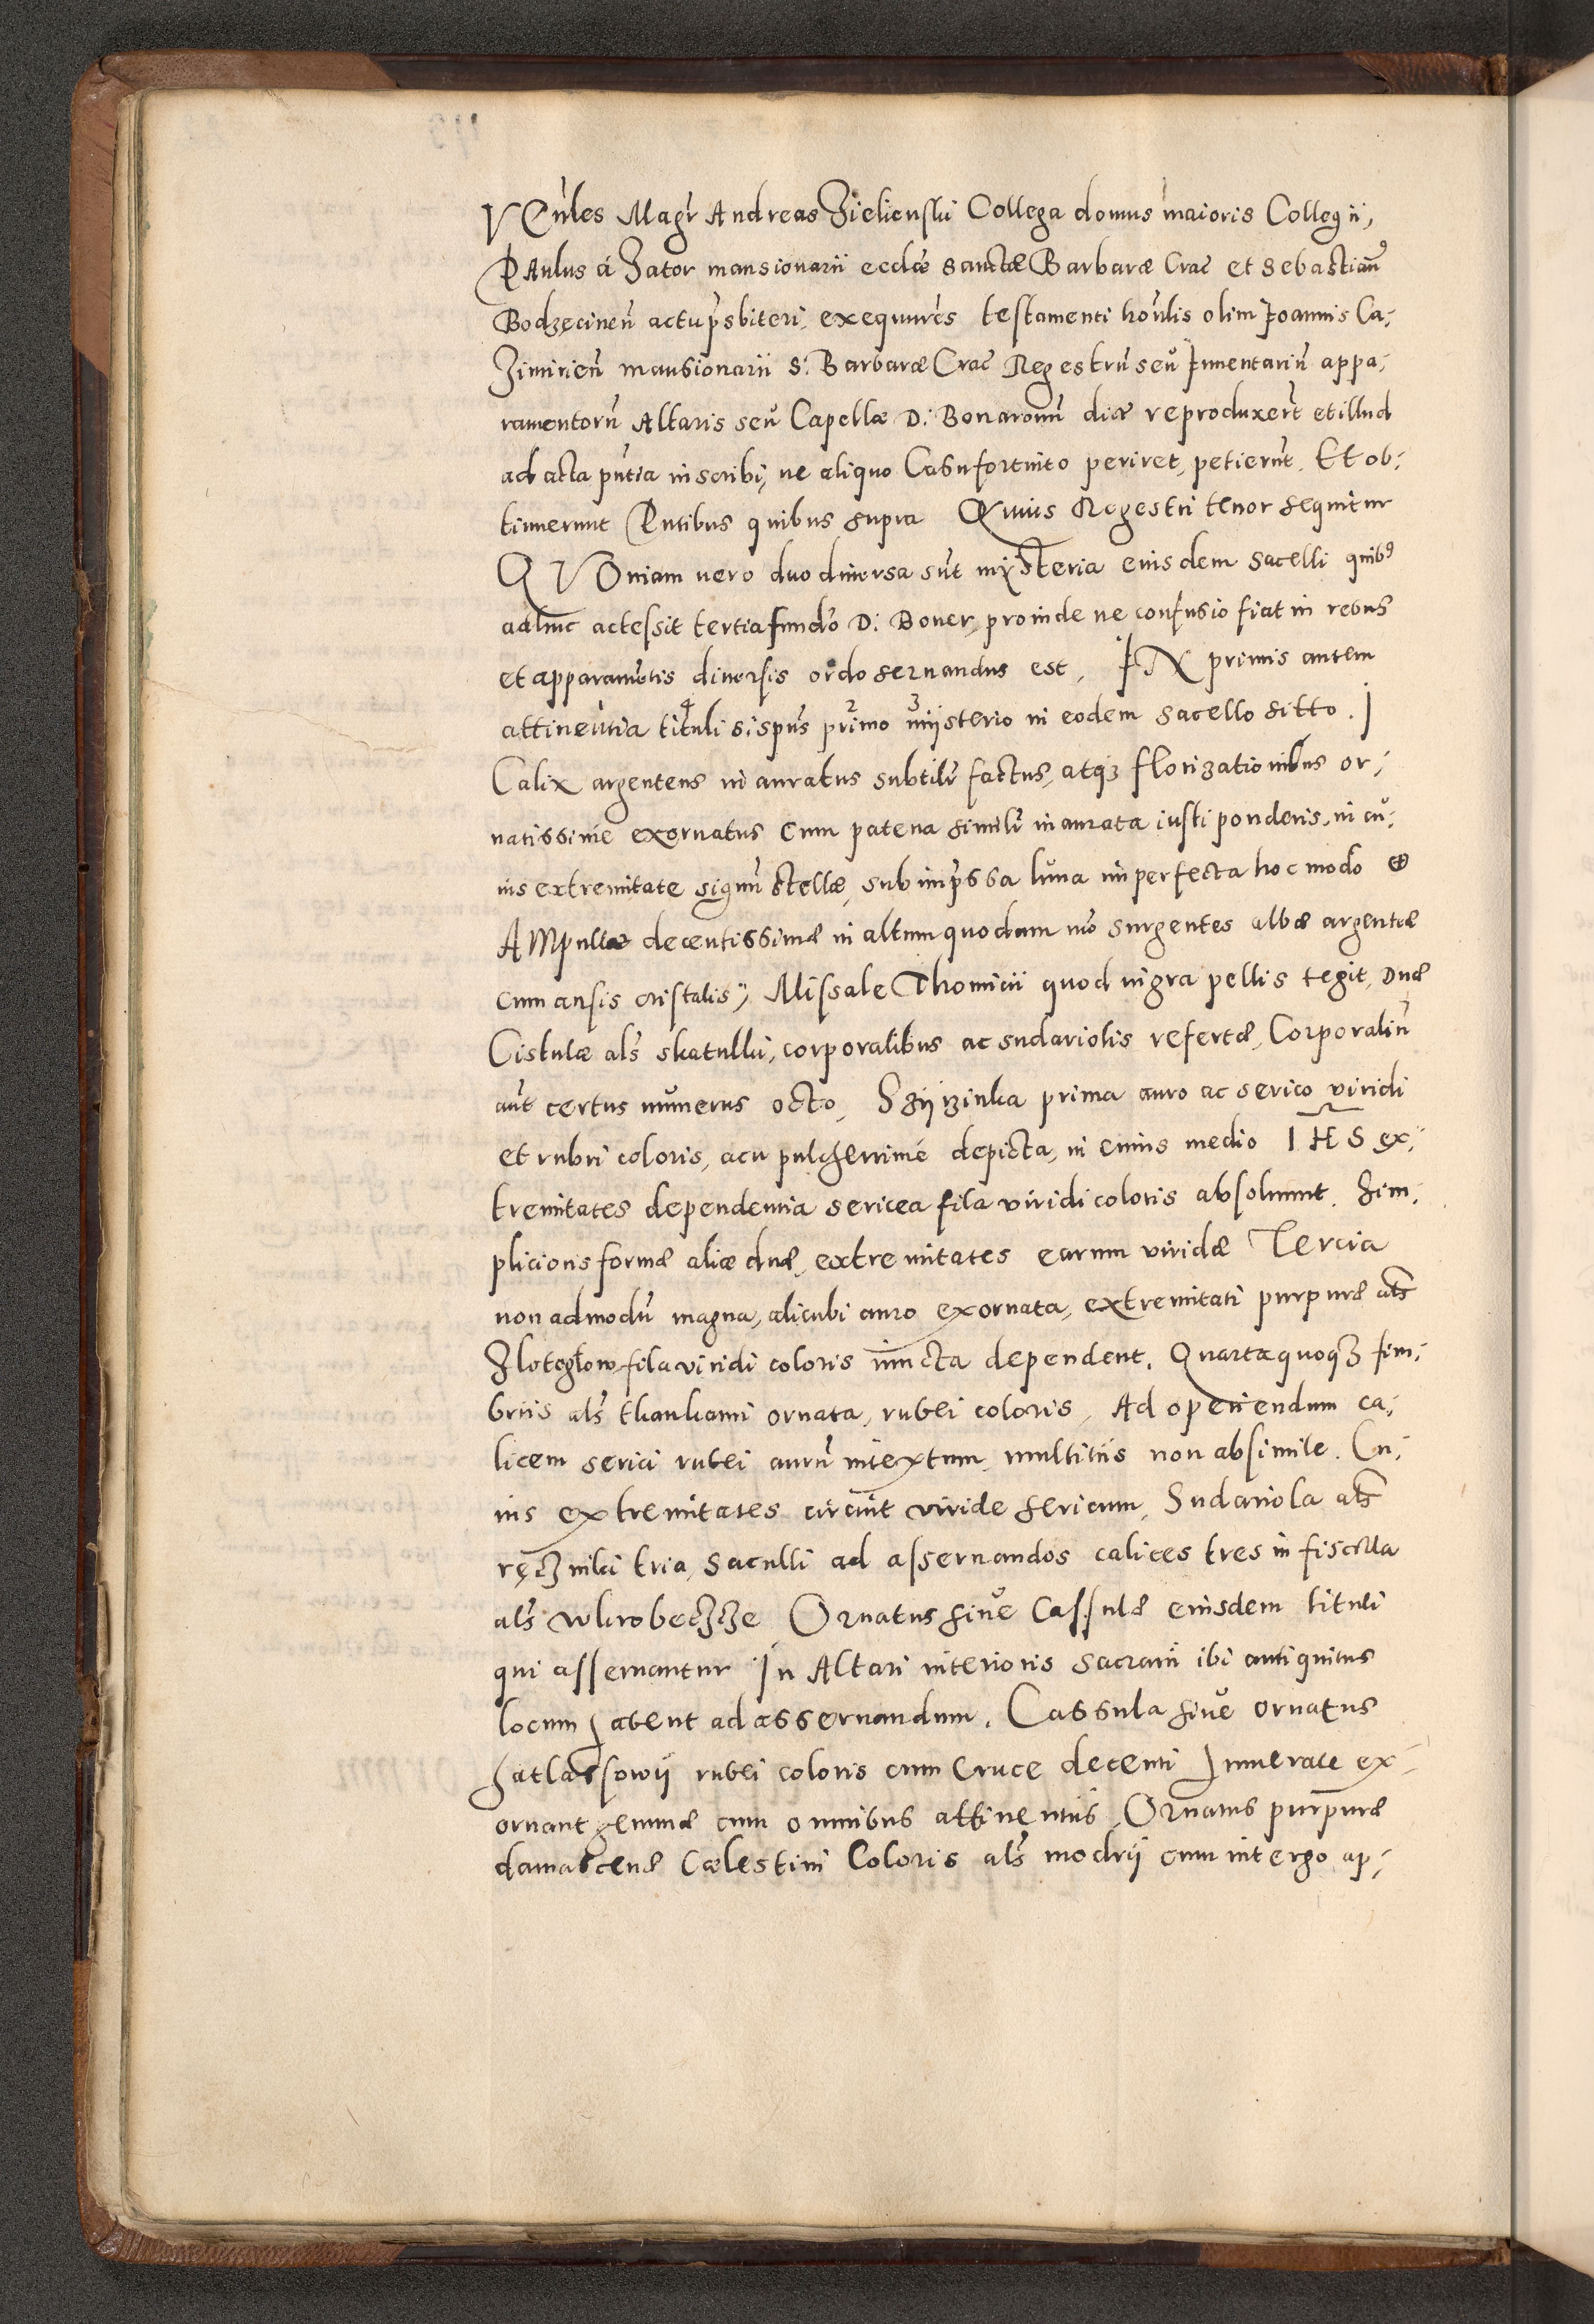 VEn̄les Magr̄ Andreas Zielienski Collega domus maioris Collegii,
PAulus á Zator mansionarii eccl̄æ sanctæ Barbaræ Crac̄ et Sebastian9
Bodzecinen̄ actu p̄sbiteri, exequutēs testamenti hon̄lis olim Joannis Ca-
zimirien̄ mansionarii S: Barbaræ Crac̄ Regestrū seu Inuentariū appa-
ramentorū Altaris seu Capellæ D: Bonarorum dictæ reproduxerūt et illud
ad acta pn̄tia inscribi, ne aliquo Casu fortuito periret, petierūt. Et ob-
tinuerunt Pn̄tibus quibus supra Quius Regestri tenor sequitur
QVOniam uero duo diuersa sūt mÿsteria eiusdem sacelli quib9
adhuc actessit tertia fundō D: Boner, proinde ne confusio fiat in rebus
et apparamētis diuersis ordo seruandus est, IN primis autem
attinentia tituli s. spūs primo mÿsterio in eodem sacello sitto. I
Calix argenteus inauratus subtilr̄ factus, atq3 florizationibus or-
natissime exornatus cum patena similr̄ inaurata iusti ponderis, in cu-
ius extremitate signū stellæ, sub imp̄ssa luna imperfecta hoc modo
AMpullæ decentissimæ in altum quodam mō surgentes albæ argenteæ
cum ansis cristalis, Missale Thomicii quod nigra pellis tegit, Duæ
Cistulæ als̄ skatulki, corporalibus ac sudariolis refertæ, Corporaliū
aūt certus numerus octo, Szÿrzinka prima auro ac serico viridi
et rubri coloris, acu pulcherrimé depicta, in cuius medio IHS ex-
tremitates dependentia sericea fila viridi coloris absoluunt. Sim-
plicioris formæ aliæ duæ, extremitates earum viridæ Tercia
non admodū magna, alicubi auro exornata, extremitati purpuræ als̄
Zlotoglow fila viridi coloris iuncta dependent. Quarta quoq3 fim-
briis als̄ tkankami ornata, rubei coloris, Ad operiendum ca-
licem serici rubei aurū intextum, multitiis non absimile. Cu-
ius extremitates circuit viride sericum, Sudariola als̄
ręcznilki tria, Saculli ad asseruandos calices tres in fiscella
als̄ wkrobeczcze Ornatus siue Cassulæ eiusdem tituli
qui asseruantur In Altari interioris sacrarii ibi antiquitus
locum habent ad asseruandum. Cassula siue ornatus
hatlassowÿ rubei coloris cum cruce decenti Innerate ex-
ornant gemmæ cum omnibus attinentiis, Ornatus purpuræ
damascenæ Cælestini Coloris als̄ modrÿ cum intergo ap-